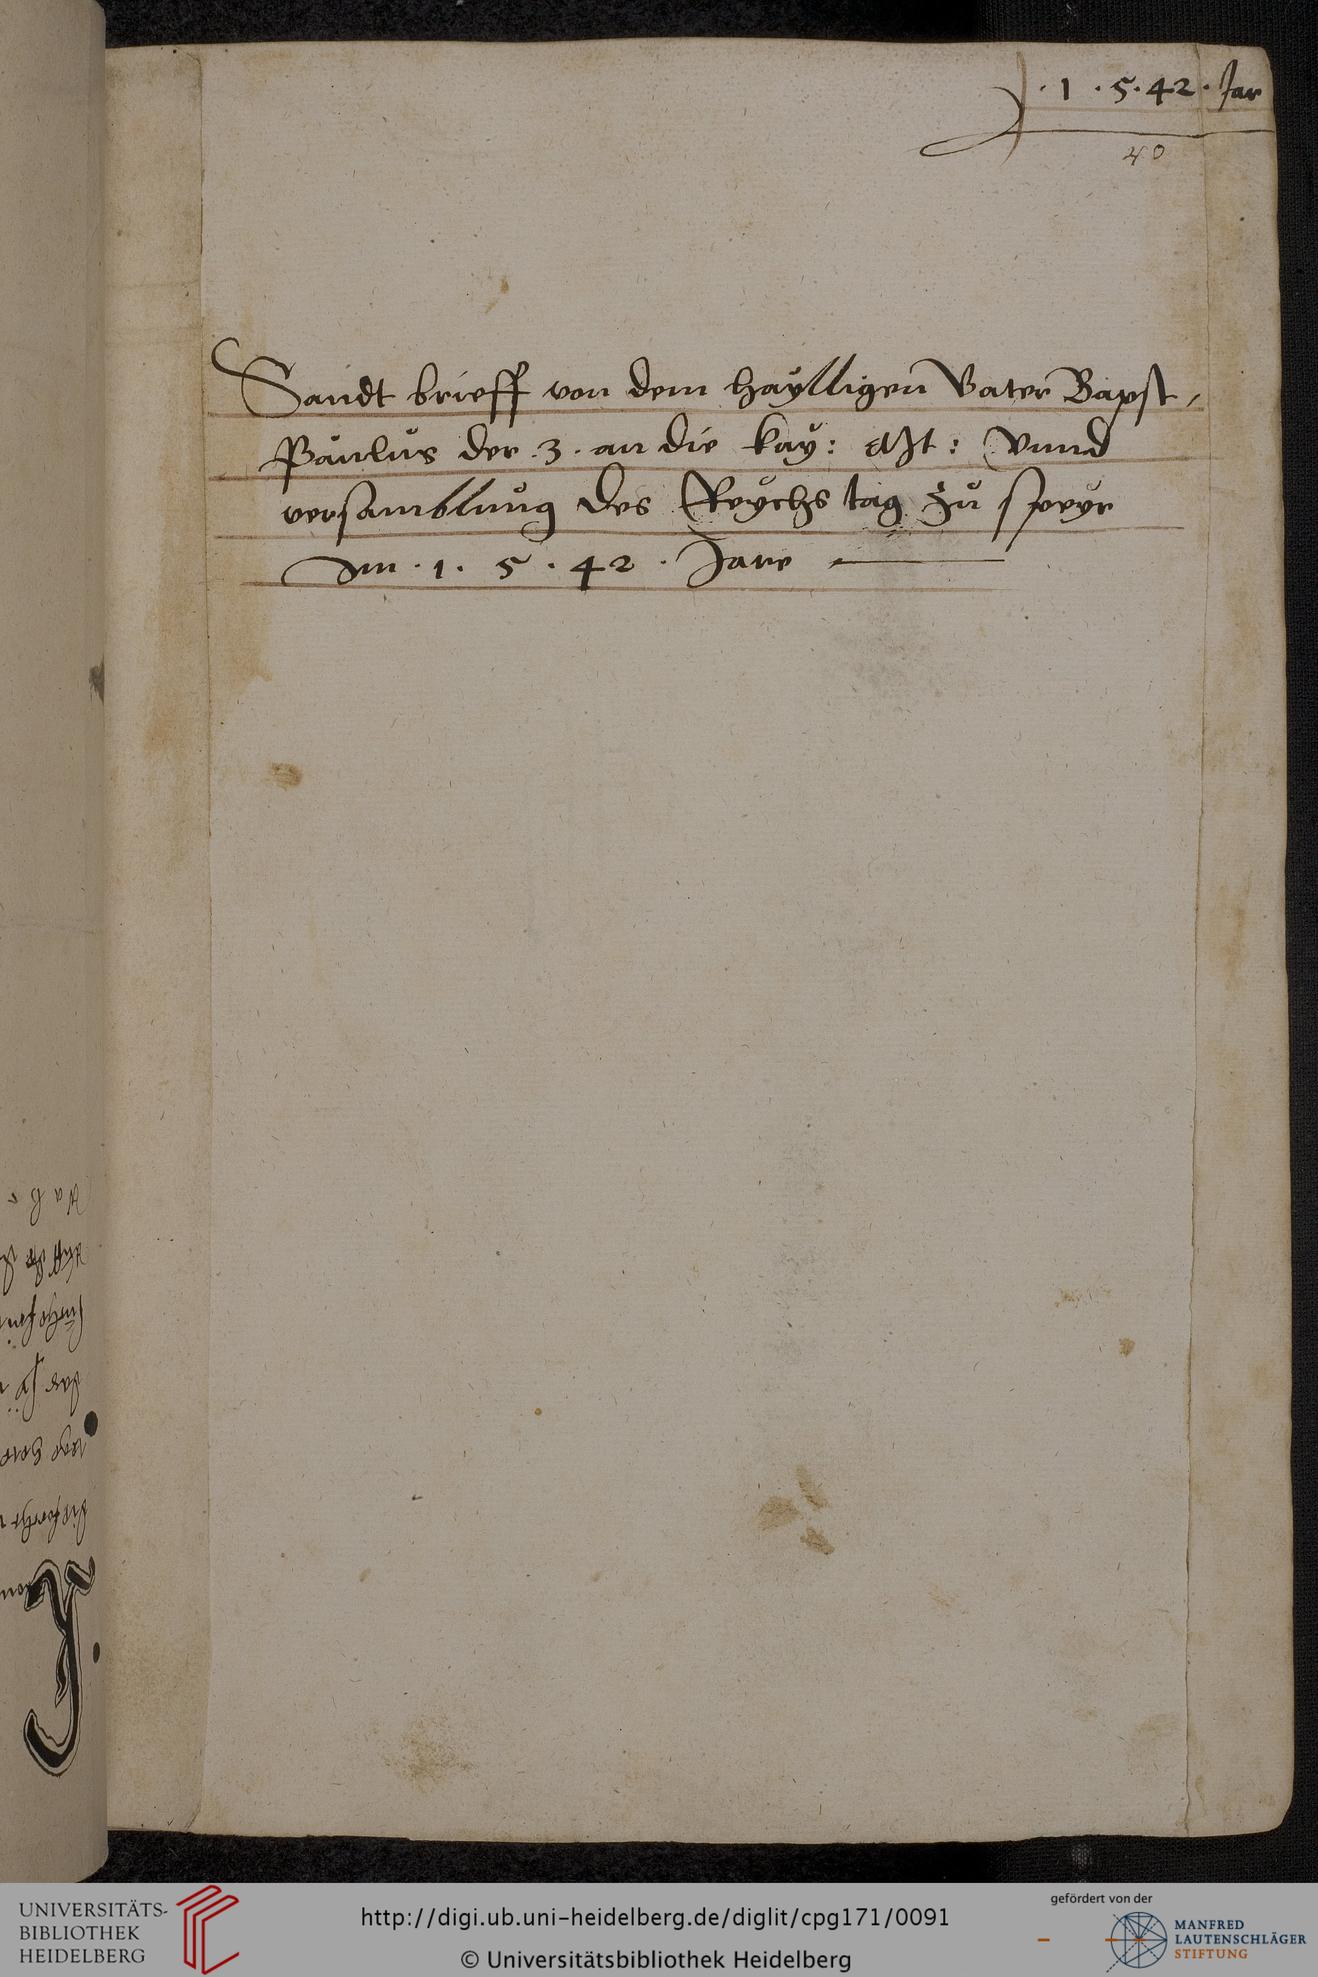 . 1 . 5 . 42 . Jar
40
Sandt brieff von dem haylligen Vater Bapst,
Paulus der .3. an die kay: Mt: Vnnd
versamblung des Reychs tag zu speyr
Im . 1 . 5 . 42 . Jare
UNIVERSITÄTS-
BIBLIOTHEK
HEIDELBERG
http://digi.ub.uni-heidelberg.de/diglit/cpg171/0091
© Universitätsbibliothek Heidelberg
gefördert von der
MANFRED
LAUTENSCHLÄGER
STIFTUNG